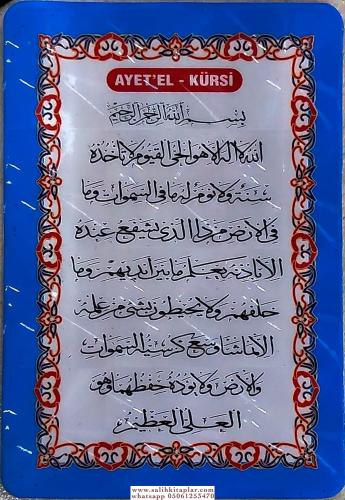 AYET'EL - KÜRSİ
بسم الله الرحمن الرحيم
الله لا اله الا هو الحي القيوم لا تأخذه
سنة ولا نوم له ما في السموات وما
في الارض من ذا الذي يشفع عنده
الا باذنه يعلم ما بين ايديهم وما
خلفهم ولا يحيطون بشئ من علمه
الا بما شاء وسع كرسيه السموات
والارض ولا يؤده حفظهما وهو
العلي العظيم
www.salihkitaplar.com
whatsapp 05061253470